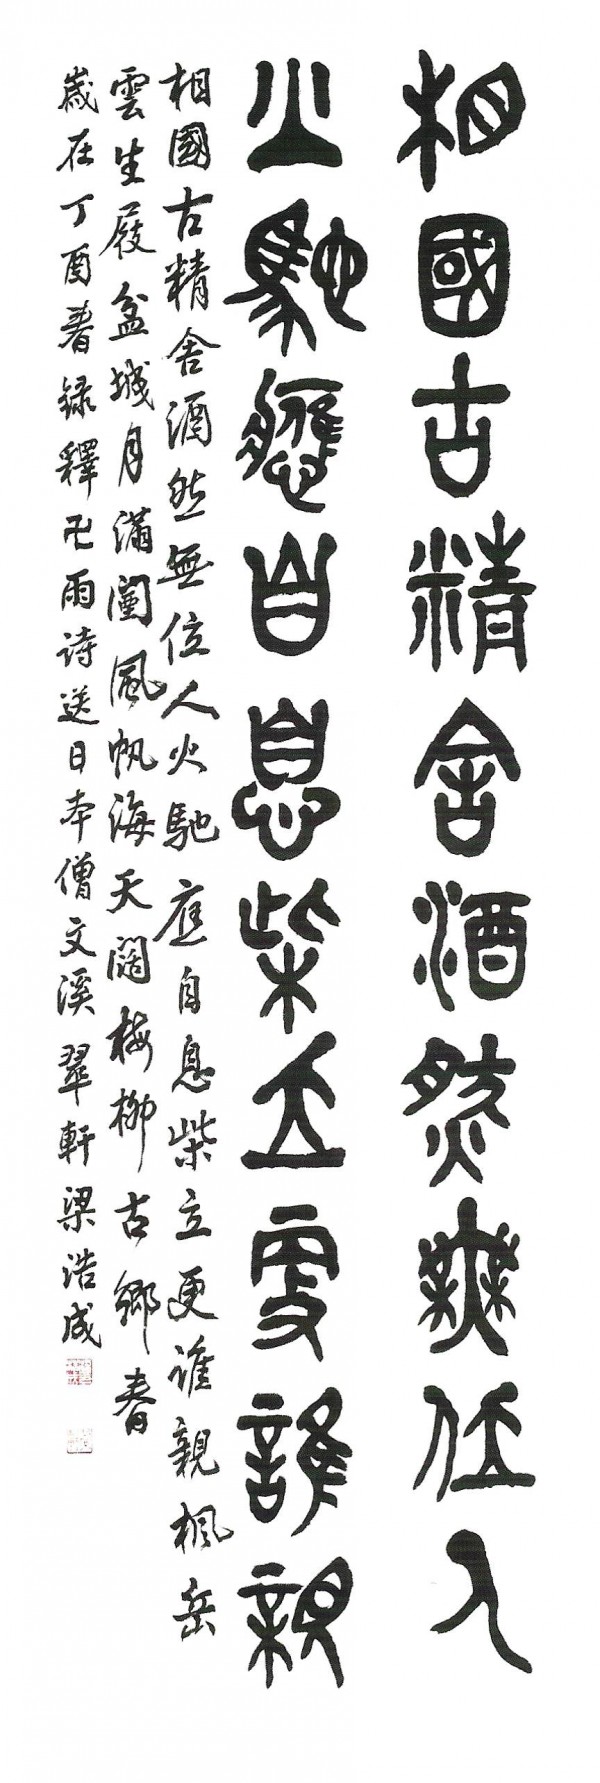 相國古精舍酒然無位人
火馳應自息柴立更誰親
相國古精舍酒然無位人火馳應自息柴立更誰親楓岳
雲生屐盆城月滿闉風帆海天闊梅柳古鄉春
歲在丁酉春錄釋卍雨詩送日本僧文溪翠軒梁浩成